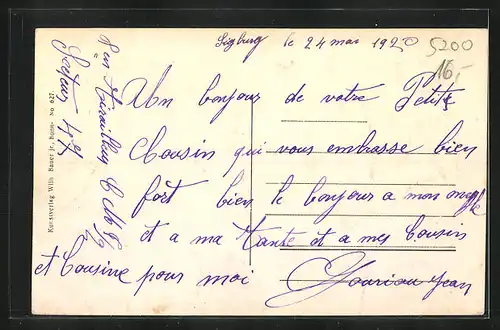 Sigburg le 24 mai 1920
5200
16,-
Un bonjour de votre Petit
Cousin qui vous embrasse bien
fort bien le bonjour a mon oncle
et a ma Tante et a mes Cousins
et Cousine pour moi
Jean
Secteur 47
Kunstverlag Wilh. Bauer jr., Bonn. No 627.